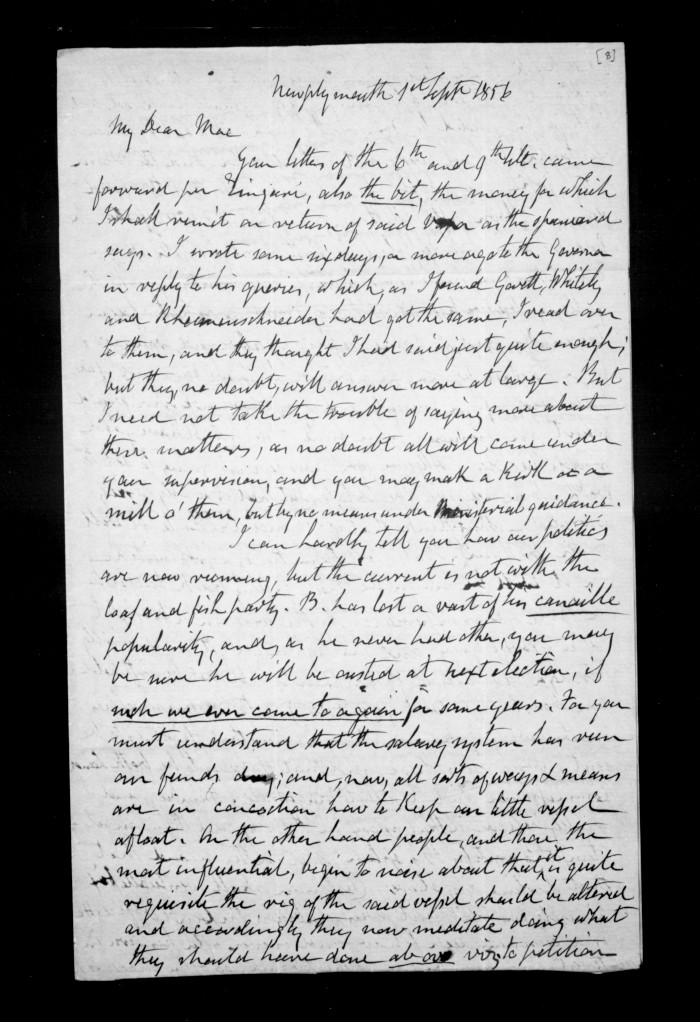 [8]
Newplymouth 1st Septr 1856
My Dear Mac
Your letters of the 6th and 9th ult. came
forward per Zingari, also the bit, the money for which
I shall remit on return of said as the spaniard
says. I wrote some six days, or more ago to the Governor
in reply to his queries, which, as I found Govett, Whitely
and Rhiemenschneider had got the same, I read over
to them, and they thought I had said just quite enough;
but they, no doubt, will answer more at large. But
I need not take the trouble of saying more about
these matters, as no doubt all will come under
your supervision, and you may mak a kirk or a
mill o' them, but by no means under Ministerial guidance.
I can hardly tell you how our politics
are now running, but the current is not with the
loaf and fish party. B. has lost a vast of his canaille
popularity, and, as he never had other, you may
be sure he will be ousted at next election, if
such we ever come to again for some years. For you
must understand that the salary system has run
our funds dry; and, now, all sorts of ways & means
are in concoction how to keep our little vessel
afloat. On the other hand people, and those the
most influential, begin to noise about that it is quite
requisite the rig of the said vessel should be altered
and accordingly they now meditate doing what
they should have done ab ovo viz to petition